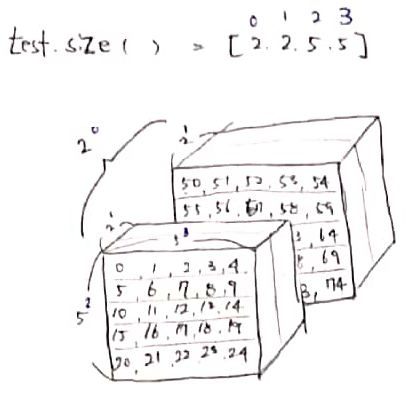 0 1 2 3
test.size( ) = [2.2.5.5]
2⁰
2¹
50, 51, 52, 53, 54
55, 56, 57, 58, 59
64
69
74
2¹
5³
5²
0, 1, 2, 3, 4.
5, 6, 7, 8, 9
10, 11, 12, 13, 14
15, 16, 17, 18, 19
20, 21, 22, 23, 24